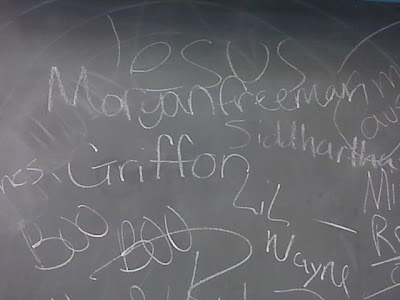 Jesus
Morgan Freeman
Siddhartha
Griffon
Lil
Wayne
Boo Boo